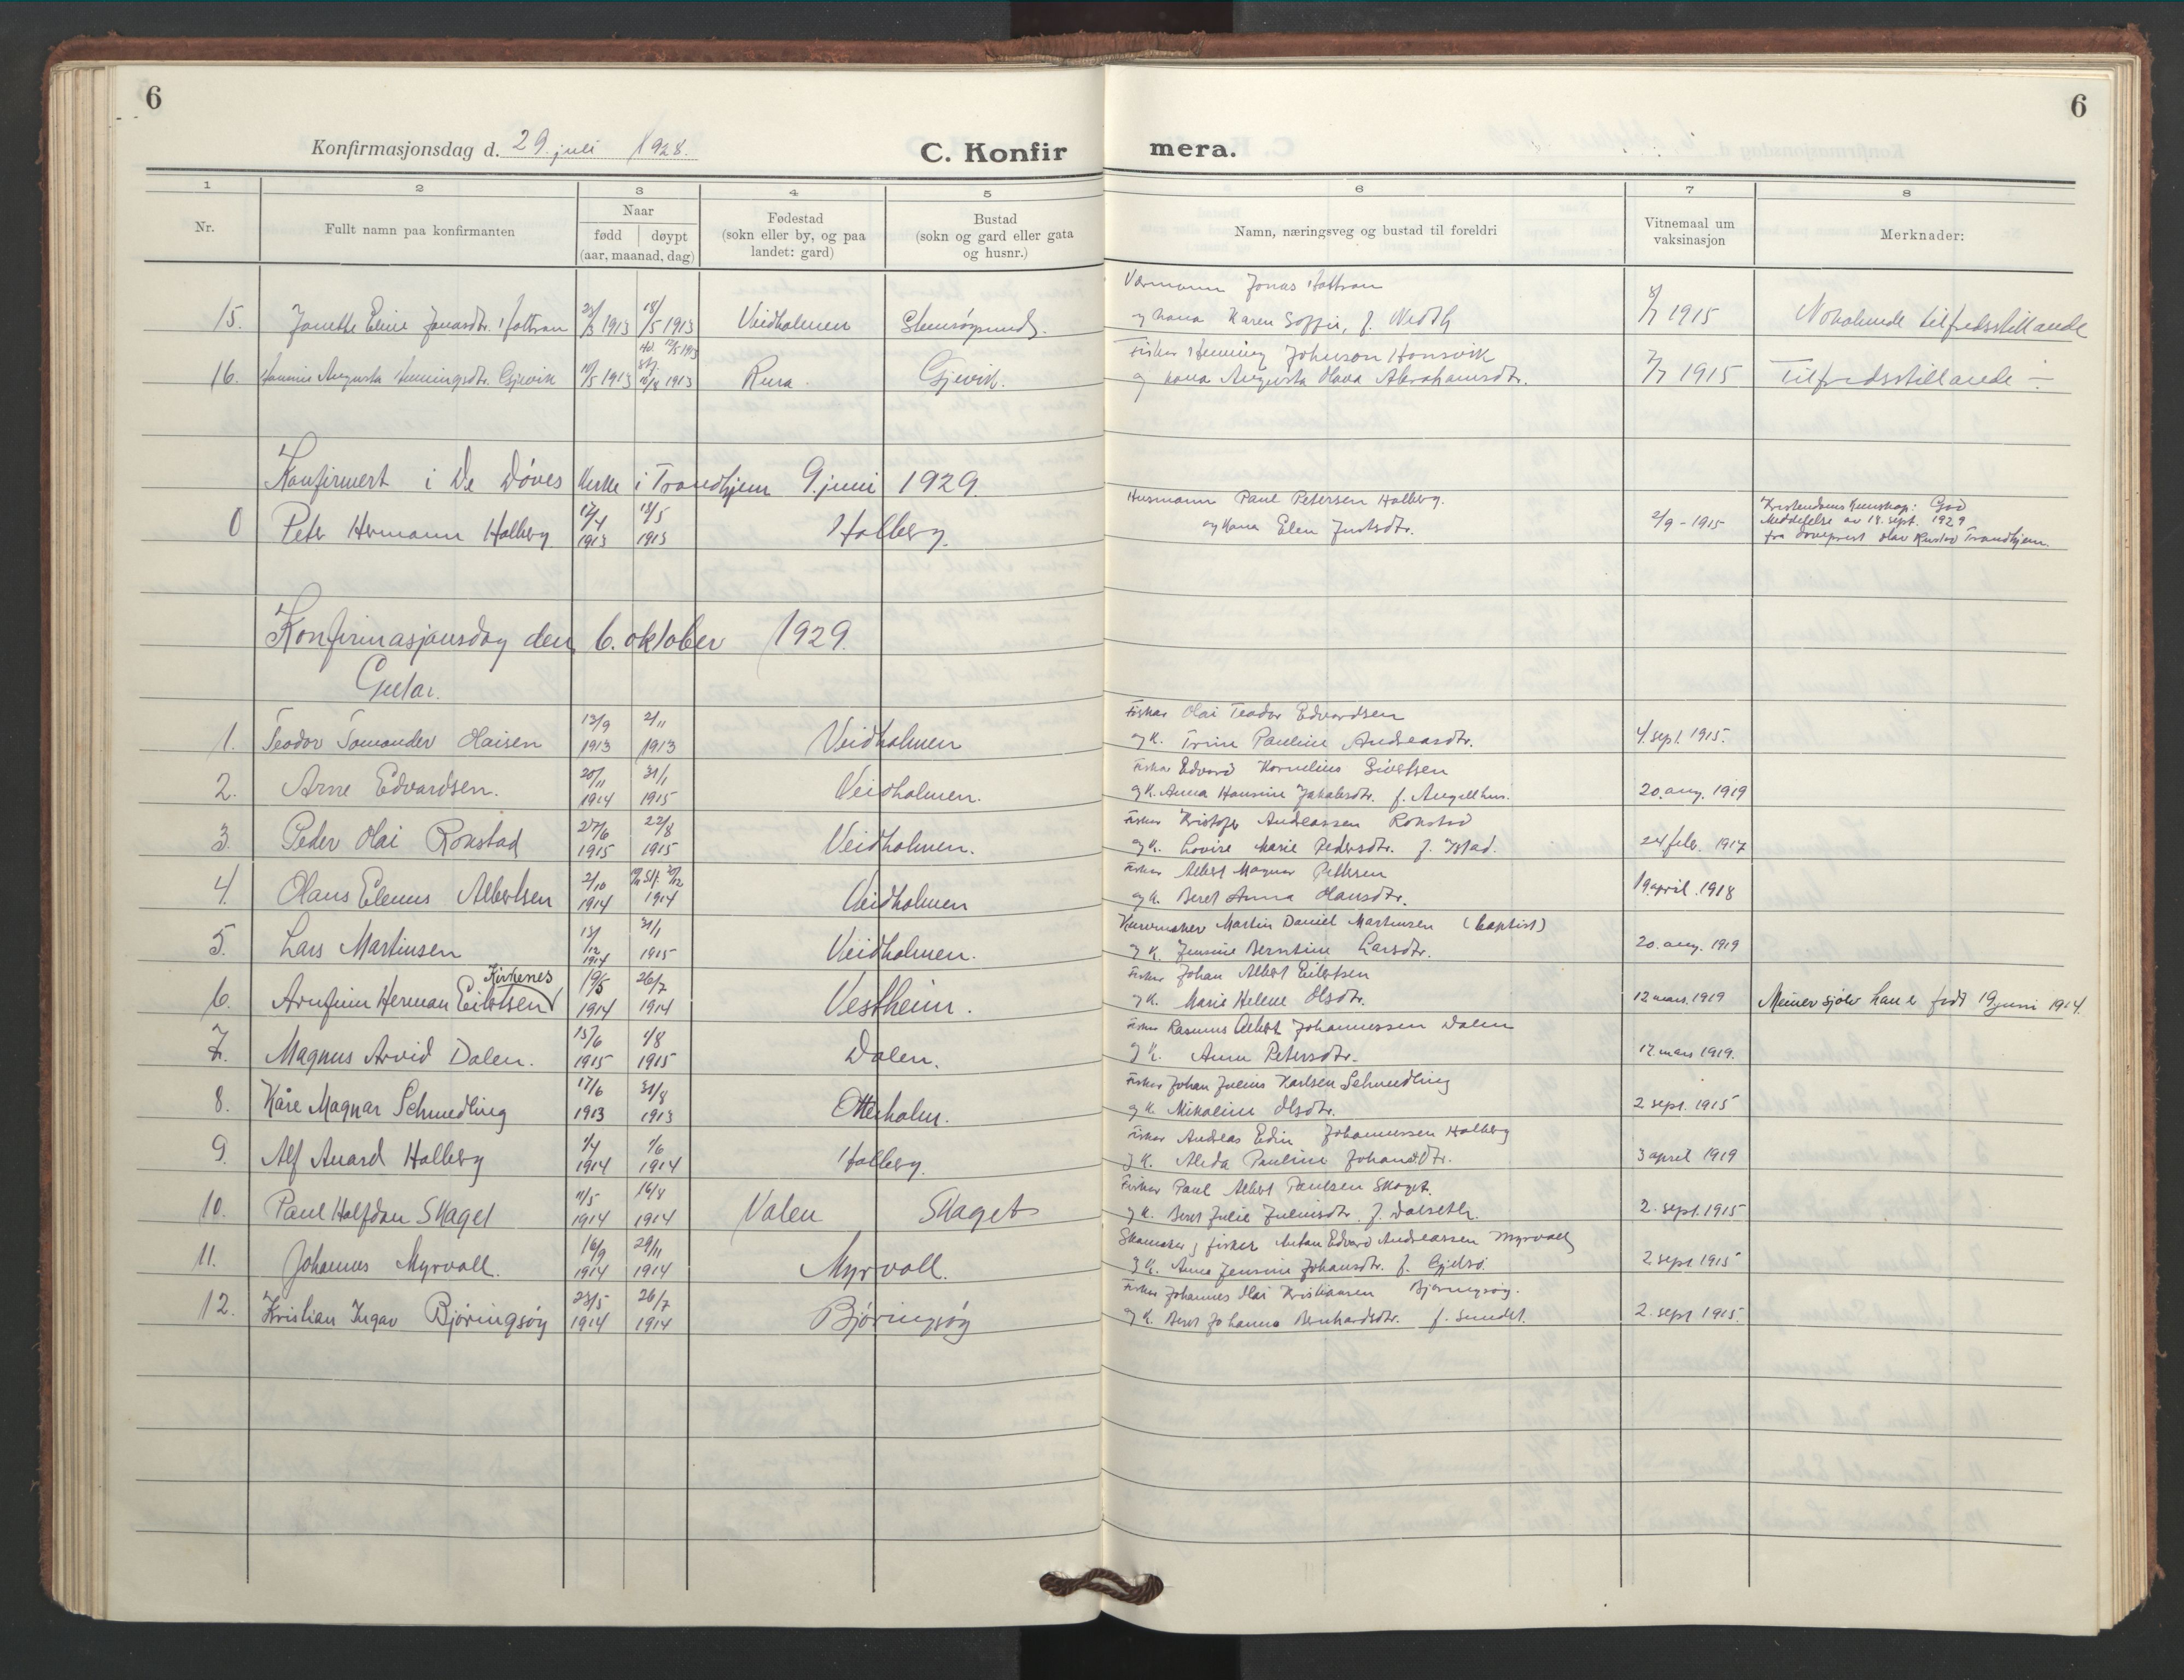 6
6
Konfirmasjonsdag d. 29. juli 1928.
C. Konfirmera.
1 2 3 4 5 6 7 8
Nr.
Fullt namn paa konfirmanten
Naar
fødd døypt
(aar, maanad, dag)
Fødestad
(sokn eller by, og paa
landet: gard)
Bustad
(sokn og gard eller gata
og husnr.)
Namn, næringsveg og bustad til foreldri
Vitnemaal um
vaksinasjon
Merknader:
Jonas Hottran
15. Janette Eline Jonasdtr. Hottran 1913 18/5 1913 Veidholmen og kona Karen Soffie, f. 8/7 1915 Nokolunde tilfredsstillande
Fisker Henning Johnson Honsvik
16. Augusta Henningsdtr. Gjevik 10/5 1913 1913 Rura. Gjevik. og kona Augusta Olava Abrahamsdtr. 7/7 1915 Tilfredsstillande
Konfirmert i De Døves Kirke i Trondhjem 9. juni 1929.
Husmann Paul Petersen Holberg.
0 Peter Hermann Holberg 17/4 1913 13/5 1913 Holberg. og kona Elen Justsdtr. 2/9 - 1915 Kristendoms kunskap: God
Meddelelse av 18. sept. 1929
fra døveprest Trondhjem.
Konfirmasjonsdag den 6. oktober 1929.
Gutar.
Fisker Olai Teodor Edvardsen
1. Teodor Tomander Olaisen 13/9 1913 2/11 1913 Veidholmen og k. Trine Pauline Andreasdtr. 4. sept. 1915.
Fisker Edvard Kornelius Sivertsen
2. Arne Edvardsen. 20/11 1914 31/1 1915 Veidholmen. og k. Anna Hansine Jakobsdtr. f. Angellhus. 20. aug. 1919
Fisker Kristofer Andreassen Rokstad
3. Peder Olai Rokstad 27/6 1915 22/8 1915 Veidholmen. og k. Lovise Marie Pedersdtr. f. Ystad. 24 febr. 1917
Fisker Albert Magnus Pettersen
4. Olaus Elenus Albertsen 2/10 1914 1914 Veidholmen og k. Beret Anna Olausdtr. 19. april. 1918
Martin Daniel Martinsen (baptist)
5. Lars Martinsen 13/12 1914 31/1 1915 Veidholmen. og k. Jensine Berntine Larsdtr. 20. aug. 1919
Kirkenes
Fisker Johan Albert Eilertsen
6. Arnfinn Herman Eilertsen 19/5 1914 26/7 1914 Vestheim. og k. Marie Helene Olsdtr. 12 mars. 1919 Meiner sjølv han er født 19 juni 1914.
Fisker Rasmus Albert Johannessen Dalen
7. Magnus Arvid Dalen. 15/6 1915 1/8 1915 Dalen. og k. Anna Petersdtr. 12 mars 1919.
Fisker Johan Julius Karlsen Schmedling
8. Kåre Magnar Schmedling 17/6 1913 31/8 1913 Otterholm. og k. Nikoline Olsdtr. 2 sept. 1915
Fisker Andreas Edin Johannessen Holberg
9. Alf Anard Holberg 1/4 1914 1/6 1914 Holberg. og k. Alida Pauline Johansdtr. 3 april 1919
Fisker Paul Albert Paulsen Skaget.
10. Paul Halfdan Skaget 11/5 1914 16/8 1914 Valen Skaget og k. Beret Julie Juliusdtr. f. Dalseth. 2. sept. 1915
Skomaker og fisker Anton Edvard Andreassen Myrvoll
11. Johannes Myrvoll. 16/9 1914 29/11 1914 Myrvoll. og k. Anna Jensine Johansdtr. f. Gjelsø. 2 sept 1915
Fisker Johannes Olai Kristiansen Bjøringsøy.
12. Kristian Ingar Bjøringsøy 23/5 1914 26/7 1914 Bjøringsøy og k. Beret Johanna Bernhardsdtr. f. Sundet. 2. sept 1915.